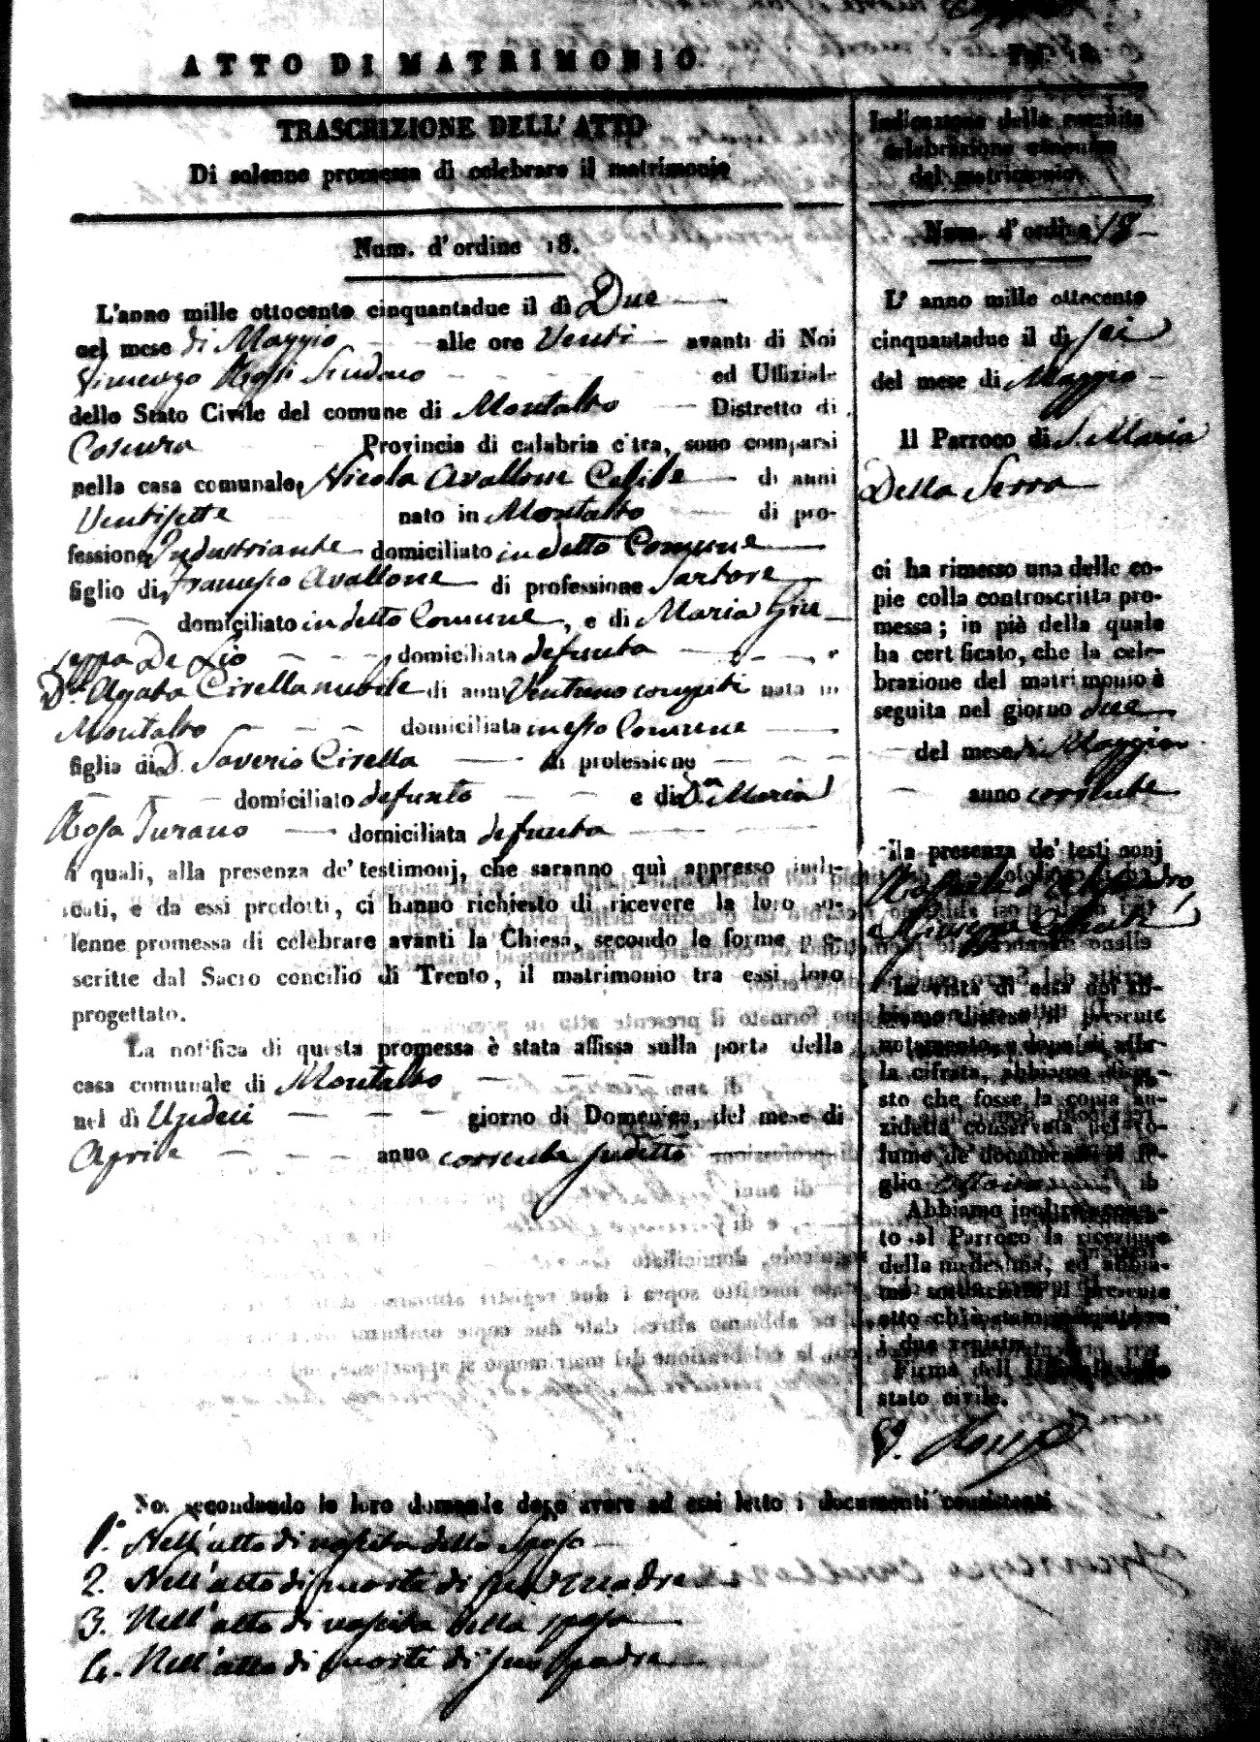 ATTO DI MATRIMONIO
TRASCRIZIONE DELL' ATTO
Di solenne promessa di celebrare il matrimonio
Num. d'ordine 18.
L'anno mille ottocento cinquantadue il dì Due
nel mese di Maggio alle ore Venti avanti di Noi
Sindaco ed Uffiziale
dello Stato Civile del comune di Montalto Distretto di
Cosenza Provincia di calabria citra, sono comparsi
nella casa comunale, Nicola Avallone Celibe di anni
Ventisette nato in Montalto di pro-
fessione Industriante domiciliato in detto Comune
figlio di Francesco Avallone di professione Sartore
domiciliato in detto Comune, e di Maria Giu
seppa De Lio domiciliata defunta
D.a Agata Cirella nubile di anni Ventuno compiti nata in
Montalto domiciliata in esso Comune
figlia di D. Saverio Cirella di professione
domiciliato defunto e di D.na Maria
Rosa Turano domiciliata defunta
i quali, alla presenza de' testimonj, che saranno quì appresso indi-
cati, e da essi prodotti, ci hanno richiesto di ricevere la loro so-
lenne promessa di celebrare avanti la Chiesa, secondo le forme pre-
scritte dal Sacro concilio di Trento, il matrimonio tra essi loro
progettato.
La notifica di questa promessa è stata affissa sulla porta della
casa comunale di Montalto
nel dì Undeci giorno di Domenica, del mese di
Aprile anno corrente sudetto
Indicazione della seguita
celebrazione canonica
del matrimonio
Num. d'ordine 18
L' anno mille ottocento
cinquantadue il dì sei
del mese di Maggio
Il Parroco di S. Maria
Della Serra
ci ha rimesso una delle co-
pie colla controscritta pro-
messa; in piè della quale
ha certificato, che la cele-
brazione del matrimonio è
seguita nel giorno due
del mese di Maggio
anno corrente
alla presenza de' testimonj
La vista di essa noi ab-
biamo disteso il presente
notamento, e dopo di aver-
la cifrata, abbiamo dispo-
sto che fosse la copia an-
zidetta conservata nel vo-
lume de' documenti al fo-
glio
Abbiamo inoltre accusa-
to al Parroco la ricezione
della medesima, ed abbia-
mo sottoscritto il presente
atto ch'è stato
i due registri
Firma dell' Uffiziale dello
stato civile.
Noi secondando le loro domande dopo avere ad essi letto i documenti consistenti
1.° Nell'atto di nascita dello Sposo
2. Nell'atto di morte di sua madre
3. Nell'atto di nascita della sposa
4. Nell'atto di morte di suo padre